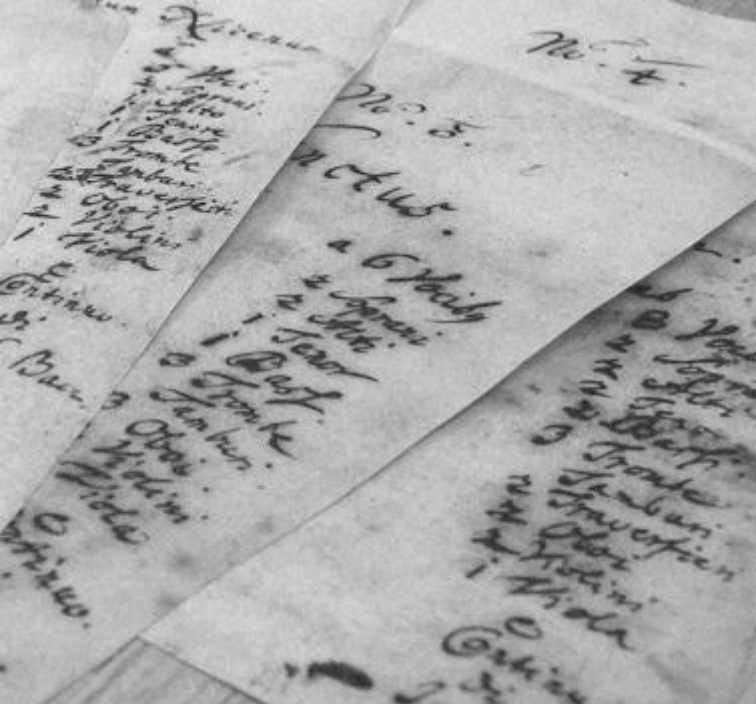 5 Voci.
2 Soprani.
1 Alto
1 Tenore
1 Basso.
3 Trombe
Tamburi.
2 Traversieri
2 Oboi.
2 Violini
1 Viola
e
Continuo.
di
Bach.
No. 3.
nctus.
a 6 Vocibg
2 Soprani.
2 Alti.
1 Tenor
1 Bass.
3 Trombe
Tamburi.
3 Oboi.
Violini.
Viola
e
ontinuo.
No. 4.
8 Voc
2 Sopr
2 Alti
2 Teno
2 Bassi.
3 Trombe
Tamburi.
2 Traversieri
2 Oboi
2 Violini
1 Viola
e
Continu
di